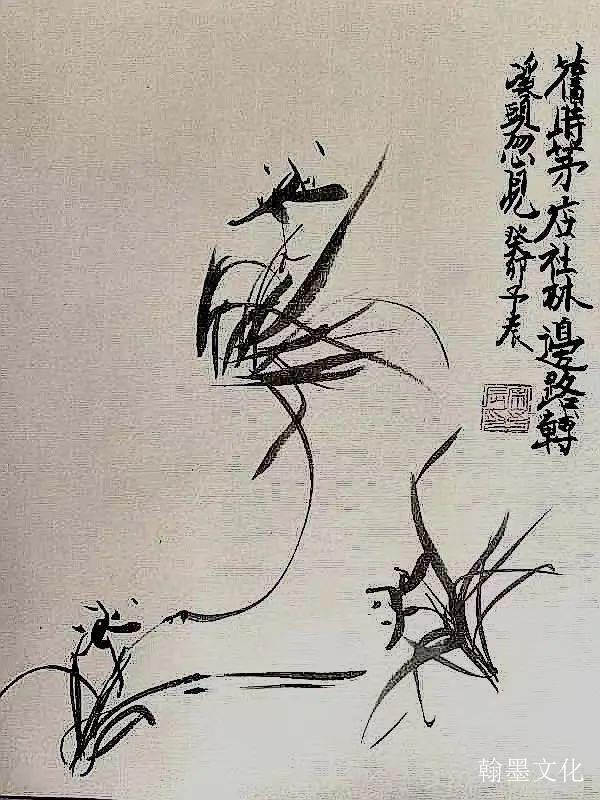 舊時茅店社林邊路轉
溪頭忽見 癸卯子表
翰墨文化